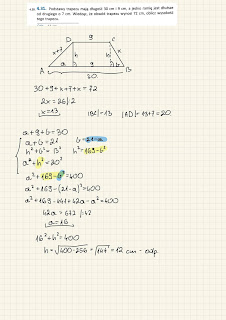 4.31. Podstawy trapezu mają długości 30 cm i 9 cm, a jedno ramię jest dłuższe
od drugiego o 7 cm. Wiedząc, że obwód trapezu wynosi 72 cm, oblicz wysokość
tego trapezu.
D 9 C
x+7 h h x
A a 9 b B
30
30+9+x+7+x=72
2x=26 |:2
x=13 |BC|=13 |AD|=13+7=20
a+9+b=30
a+b=21 b=21-a
h²+b²=13² h²=169-b²
a²+h²=20²
a²+169-b²=400
a²+169-(21-a)²=400
a²+169-441+42a-a²=400
42a=672 |:42
a=16
16²+h²=400
h=√400-256=√144=12 cm - odp.